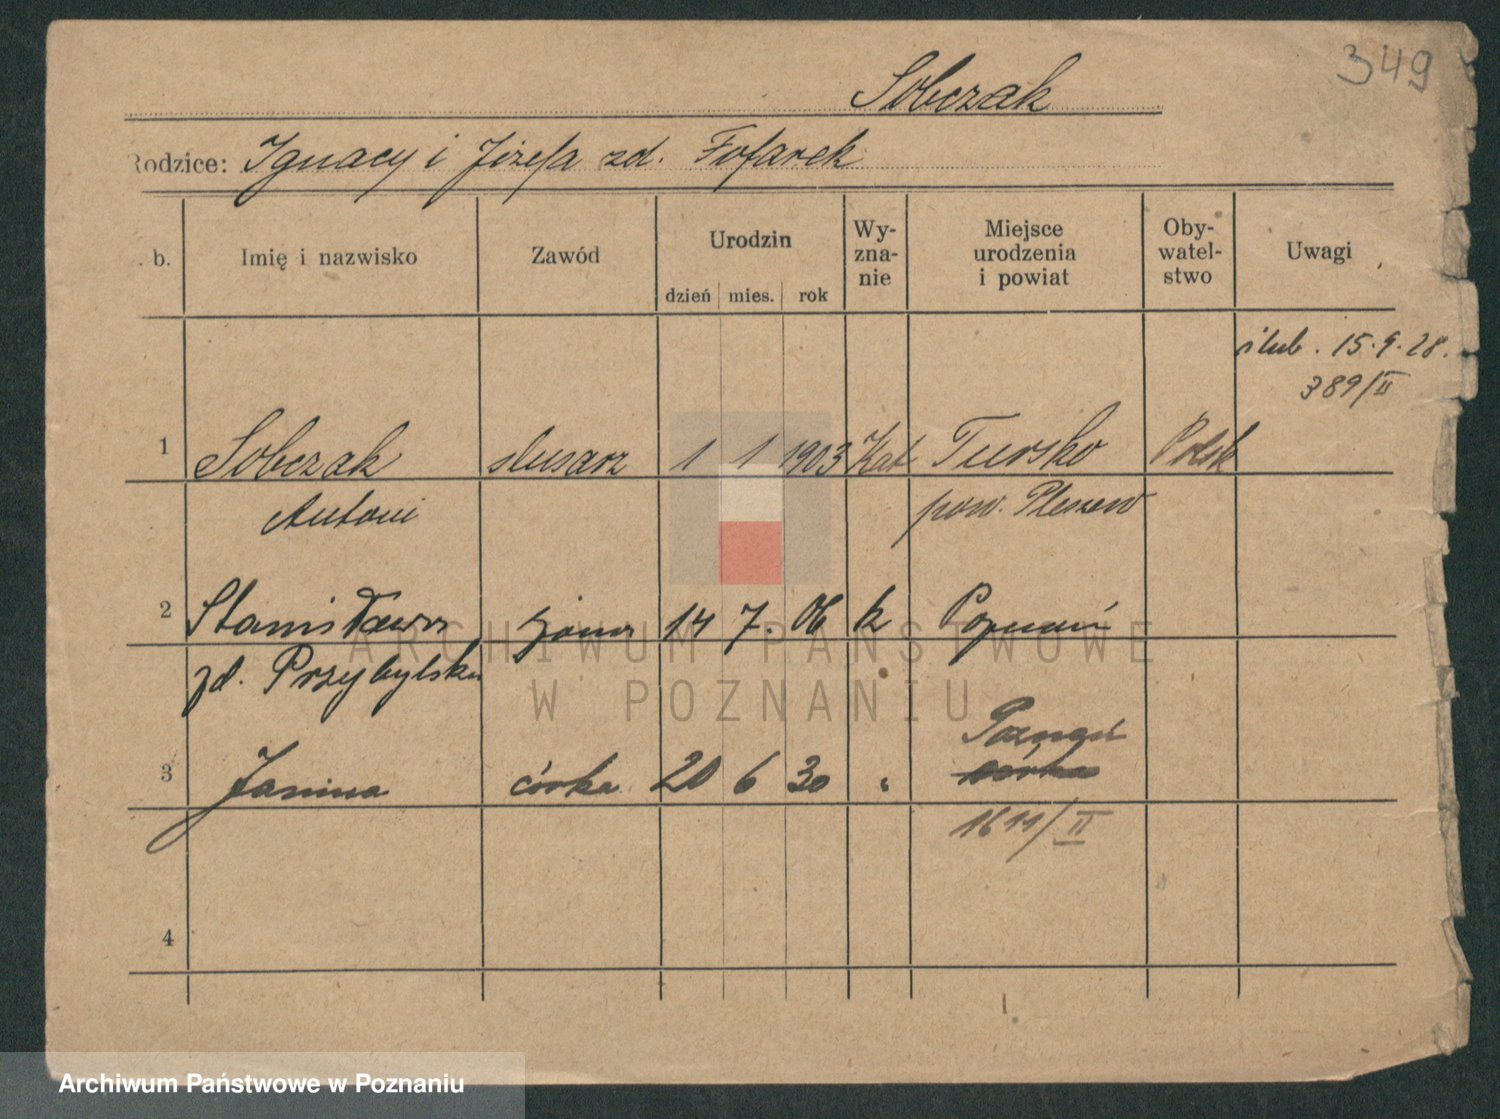 349
Sobczak
Rodzice: Ignacy i Józefa zd. Fofarek
b. Imię i nazwisko Zawód Urodzin Wy-zna-nie Miejsce urodzenia i powiat Oby-watel-stwo Uwagi
dzień mies. rok
ślub. 15.9.28.
389/II
1 Sobczak ślusarz 1 1 1903 Kat Tursko Polsk
Antoni pow. Pleszew
2 Stanisława żona 14 7. 06 k Poznań
zd. Przybylska
Poznań
3 Janina córka 20 6 30 " córka
1611/II
4
ARCHIWUM PAŃSTWOWE
W POZNANIU
Archiwum Państwowe w Poznaniu